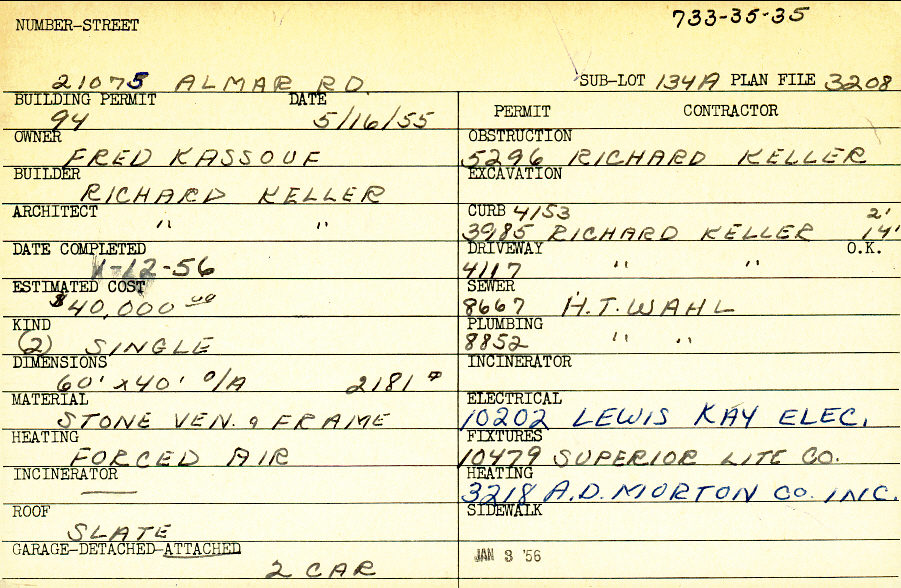 733-35-35
NUMBER-STREET
21075 ALMAR RD.
SUB-LOT 134A PLAN FILE 3208
BUILDING PERMIT DATE
94 5/16/55
OWNER
FRED KASSOUF
BUILDER
RICHARD KELLER
ARCHITECT
" "
DATE COMPLETED
-12-56
ESTIMATED COST
$40,000 00
KIND
(2) SINGLE
DIMENSIONS
60' x 40' O/A 2181
MATERIAL
STONE VEN. & FRAME
HEATING
FORCED AIR
INCINERATOR
—
ROOF
SLATE
GARAGE-DETACHED-ATTACHED
2 CAR
PERMIT CONTRACTOR
OBSTRUCTION
5296 RICHARD KELLER
EXCAVATION
CURB 4153 2'
3985 RICHARD KELLER 14'
DRIVEWAY O.K.
4117 " "
SEWER
8667 H.T. WAHL
PLUMBING
8852 " "
INCINERATOR
ELECTRICAL
10202 LEWIS KAY ELEC.
FIXTURES
10479 SUPERIOR LITE CO.
HEATING
3218 A.D. MORTON CO. INC.
SIDEWALK
JAN 3 '56